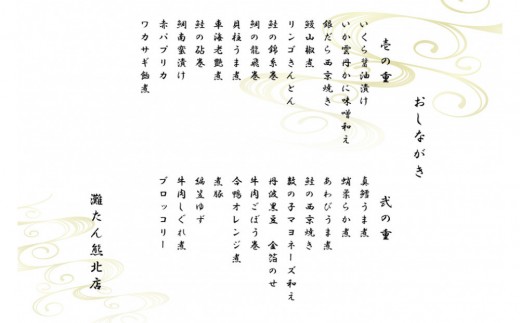 おしながき
壱の重
いくら醤油漬け
いか雲丹かに味噌和え
銀だら西京焼き
鰻山椒煮
リンゴきんとん
鮭の錦糸巻
鯛の龍飛巻
貝柱うま煮
車海老艶煮
鮭の砧巻
鯛南蛮漬け
赤パプリカ
ワカサギ飴煮
弐の重
真鱈うま煮
蛸柔らか煮
あわびうま煮
鮭の西京焼き
数の子マヨネーズ和え
丹波黒豆 金箔のせ
牛肉ごぼう巻
合鴨オレンジ煮
煮豚
編笠ゆず
牛肉しぐれ煮
ブロッコリー
灘たん熊北店